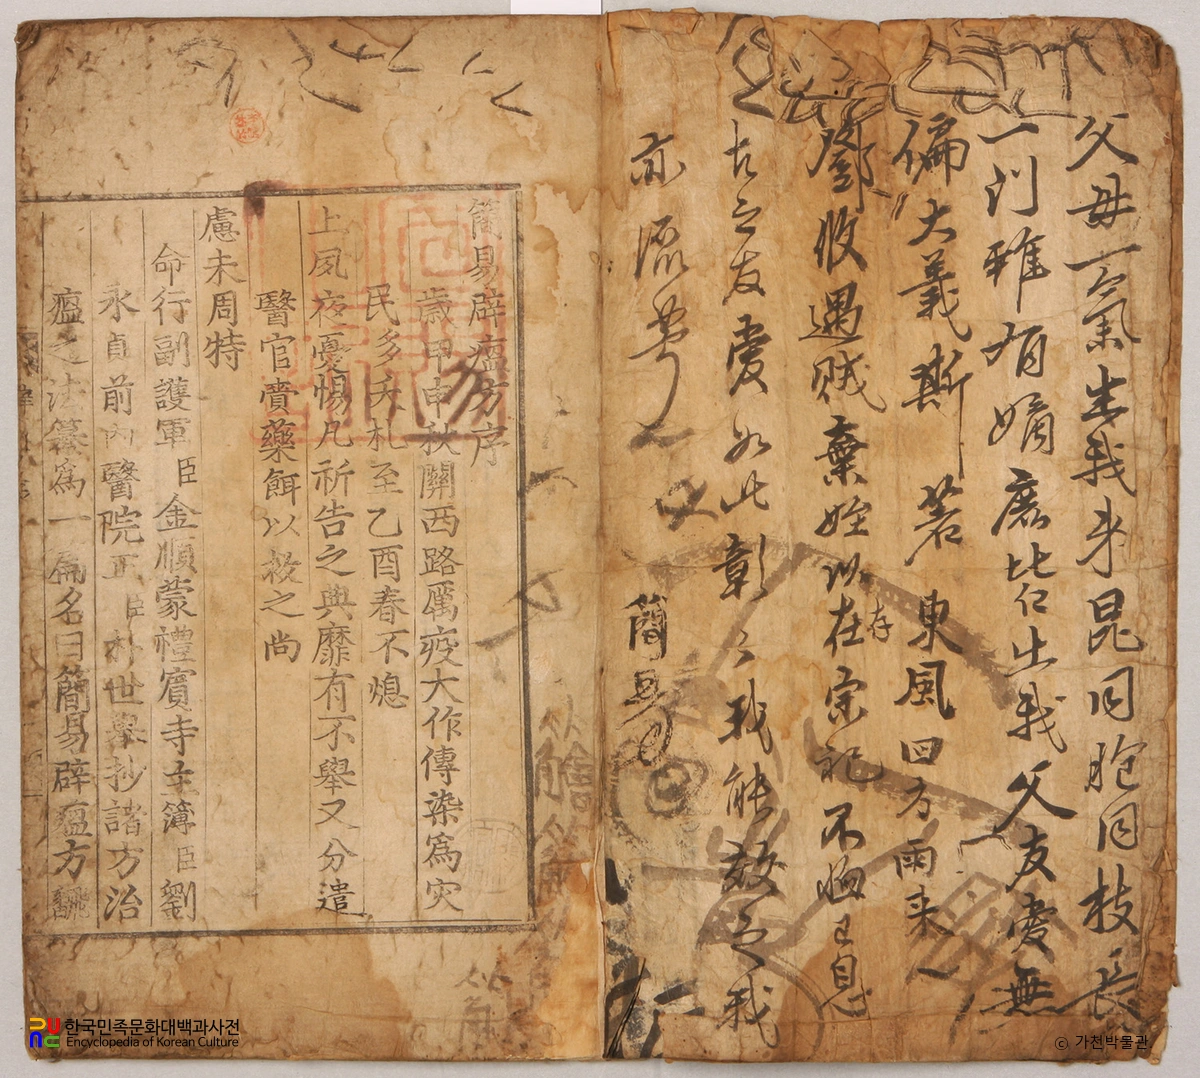 父母一氣生我弟昆同胞同枝長
一門雖有嫡庶比仁出我父友愛無
偏大義斯著東風回方雨来
鄧收遇賊棄姪以在宗祀不恤已息
存
古之友愛如此彰々我能效之我
亦
簡易
簡易辟瘟方序
歲甲申秋關西路厲疫大作傳染爲灾
民多夭札至乙酉春不熄
上夙夜憂惕凡祈告之典靡有不擧又分遣
醫官賫藥餌以救之尚
慮未周特
命行副護軍臣金順蒙禮賓寺主簿臣劉
永貞前內醫院正臣朴世擧抄諸方治
瘟之法纂爲一篇名曰簡易辟瘟方翻
한국민족문화대백과사전
Encyclopedia of Korean Culture
ⓒ 가천박물관.